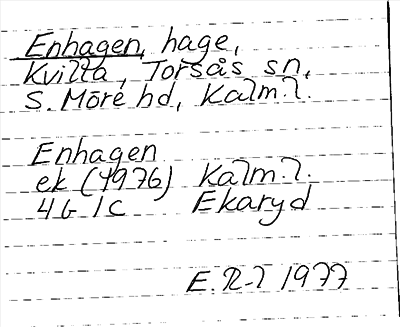 Enhagen, hage,
Kvilla, Torsås sn,
S. Möre hd, Kalm. l.
Enhagen
ek (1976) Kalm. l.
4G 1C Ekaryd
E. R-l 1977